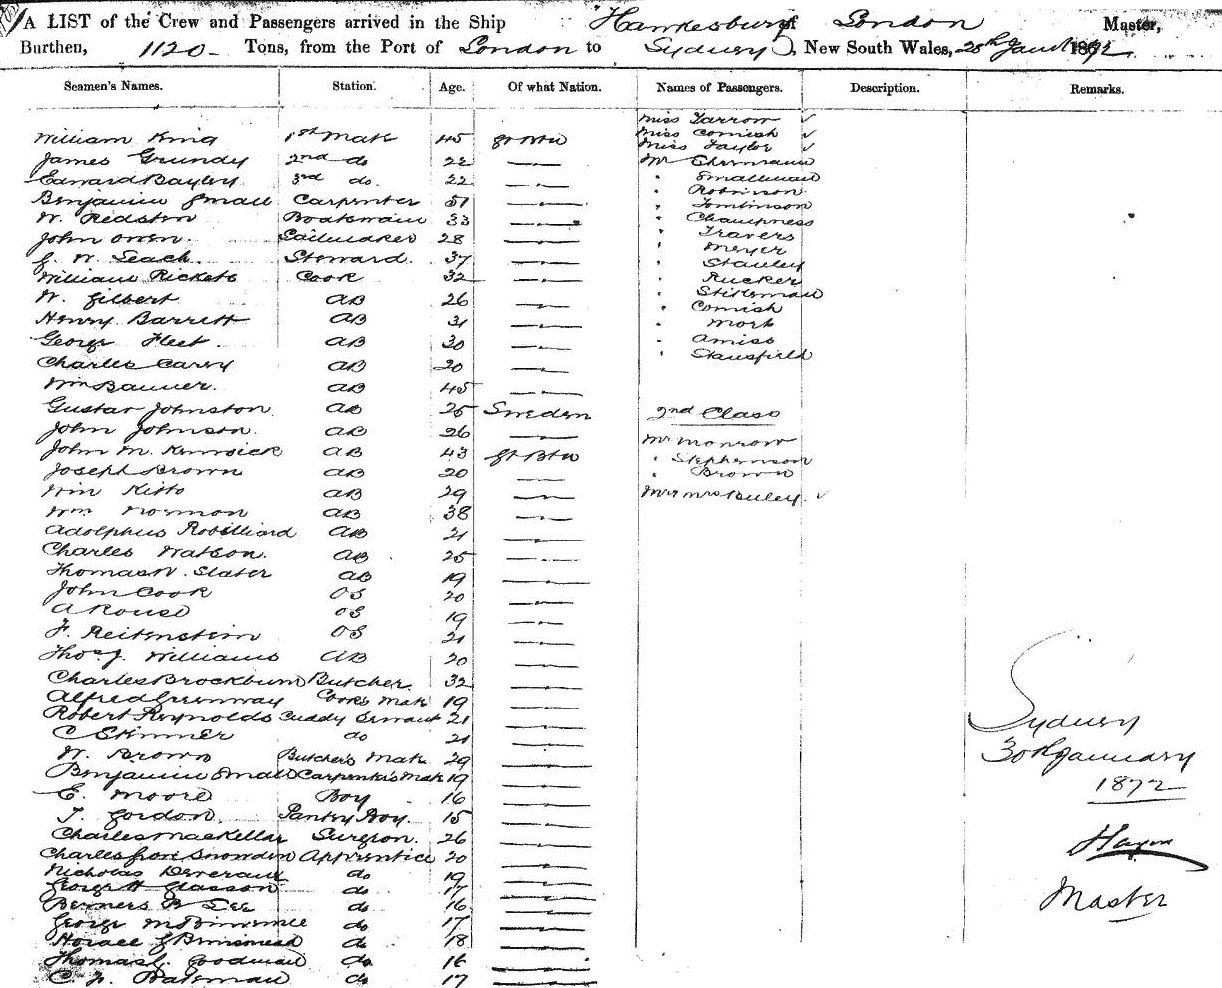 A LIST of the Crew and Passengers arrived in the Ship "Hawkesbury" of London Master,
Burthen, 1120 Tons, from the Port of London to Sydney, New South Wales, 28th Jany 1872
Seamen's Names. Station. Age. Of what Nation. Names of Passengers. Description. Remarks.
Miss Farrow ✓
William King 1st Mate 45 Gt Btn Miss Cornish ✓
Miss Taylor ✓
James Grundy 2nd do 22 — " — Mr Ehrmann
Edward Bayley 3rd do. 22 — " — " Smallman
" Robinson
Benjamin Small Carpenter 51 — " — " Tomlinson
W. Ridston Boatswain 33 — " — " Champness
John Owen Sailmaker 28 — " — " Travers
" Meyer
J. W. Leach Steward. 37 — " — " Stanley
William Rickets Cook 32 — " — " Rucker
W. Gilbert AB 26 — " — " Stikeman
" Cornish
Henry Barrett AB 31 — " — " Mort
George Fleet AB 30 — " — " Amiss
" Stansfield
Charles Carey AB 20 — " —
Wm Banner AB 45 — " —
Gustav Johnston AB 25 Sweden 2nd Class
John Johnson AB 26 — " — Mr Monrow
John M. Kenwick AB 43 Gt Btn " Stephenson
Joseph Brown AB 20 — " — " Brown
Wm Kitto AB 29 — " — Mr & Mrs ✓
Wm Norman AB 38 — " —
Adolphus Robilliard AB 21 — " —
Charles Watson AB 25 — " —
Thomas W. Slater AB 19 — " —
John Cook OS 20 — " —
A Rouse OS 19 — " —
F. Reitenstein OS 21 — " —
Thos J. Williams AB 20 — " —
Charles Brockburn Butcher 32 — " —
Alfred Greenway Cooks Mate 19 — " —
Robert Reynolds Cuddy Servant 21 — " —
C Skinner do 21 — " —
W. Brown Butcher's Mate 29 — " —
Benjamin Small Carpenter's Mate 19 — " —
E. Moore Boy 16 — " —
T. Gordon Pantry Boy. 15 — " —
Charles MacKellar Surgeon. 26 — " —
Charles Snowden Apprentice 20 — " —
Nicholas Devereaux do 19 — " —
George H Glasson do 17 — " —
Berners B Lee do 16 — " —
George do 17 — " —
Horace G Brinsmead do 18 — " —
Thomas L. Goodman do 16 — " —
C. J. Bateman do 17 — " —
Sydney
30th January
1872
Master